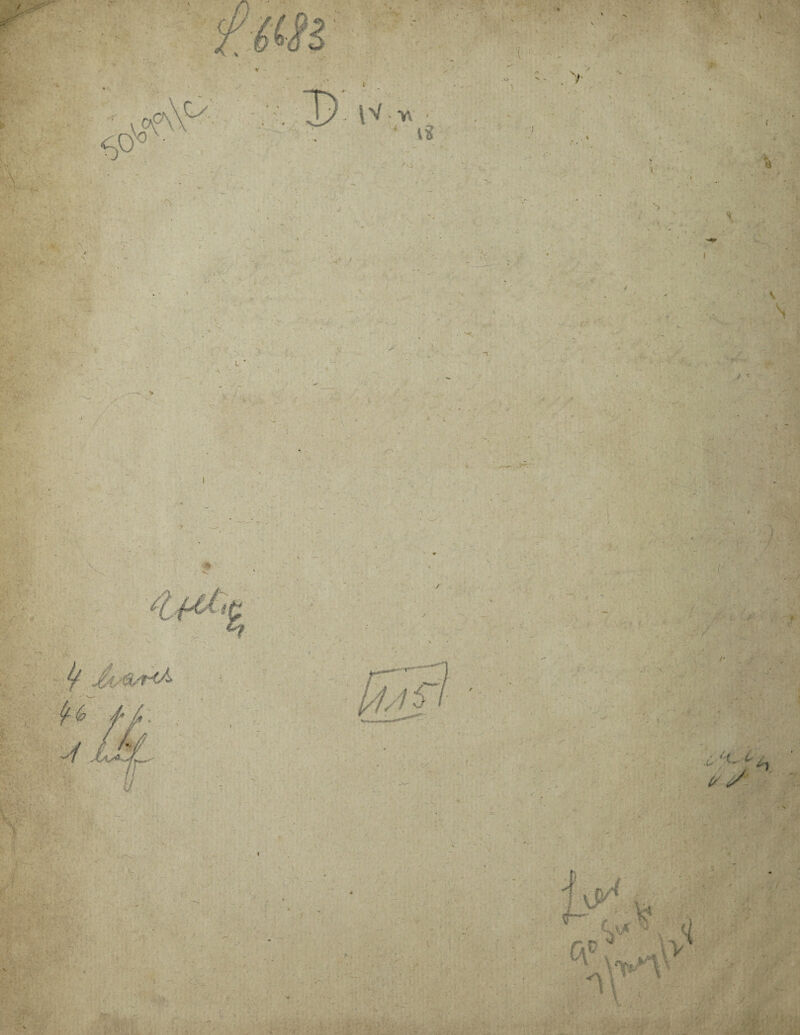 L. 6683
50699\C
D. IV. n
18
4 leaves
46 pp.
1 leaf
1115
Lier
90 Sw fr
7/May/28